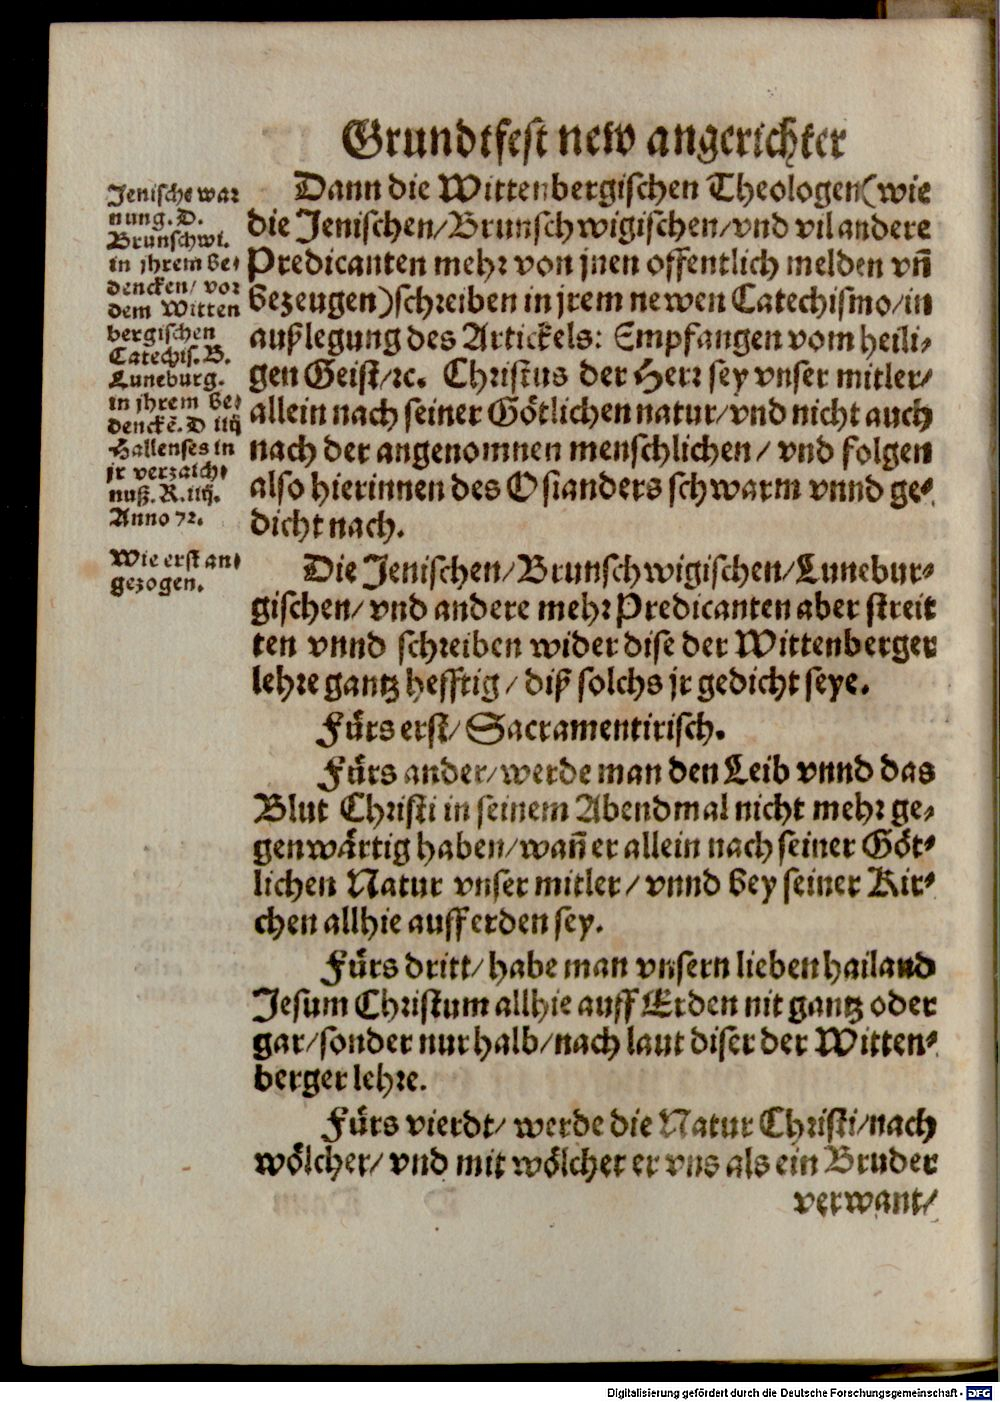 Grundtfest new angerichter
Jenische war
nung. D.
Brunschwi.
in jhrem be⸗
dencken/ vor
dem Witten
bergischen
Catechis. B.
Luneburg.
in jhrem be⸗
denckē. D iiij
Hallenses in
jr verzaich⸗
nuß. R. iiij.
Anno 72.
Wie erst an⸗
gezogen.
Dann die Wittenbergischen Theologen (wie
die Jenischen/ Brunschwigischen/ vnd vil andere
Predicanten mehr von jnen offentlich melden vn̄
bezeugen) schreiben in jrem newen Catechismo/ in
außlegung des Artickels: Empfangen vom heili⸗
gen Geist/ ꝛc. Christus der Herr sey vnser mitler/
allein nach seiner Götlichen natur/ vnd nicht auch
nach der angenomnen menschlichen/ vnd folgen
also hierinnen des Osianders schwarm vnnd ge⸗
dicht nach.
Die Jenischen/ Brunschwigischen/ Lunebur⸗
gischen/ vnd andere mehr Predicanten aber streit
ten vnnd schreiben wider dise der Wittenberger
lehre gantz hefftig/ diß solchs jr gedicht seye.
Fürs erst/ Sacramentirisch.
Fürs ander/ werde man den Leib vnnd das
Blut Christi in seinem Abendmal nicht mehr ge⸗
genwärtig haben/ wan̄ er allein nach seiner Göt⸗
lichen Natur vnser mitler/ vnnd bey seiner Kir⸗
chen allhie auff erden sey.
Fürs dritt/ habe man vnsern lieben hailand
Jesum Christum allhie auff Erden nit gantz oder
gar/ sonder nur halb/ nach laut diser der Witten⸗
berger lehre.
Fürs vierdt/ werde die Natur Christi/ nach
wölcher/ vnd mit wölcher er vns als ein Bruder
verwant/
Digitalisierung gefördert durch die Deutsche Forschungsgemeinschaft - DFG